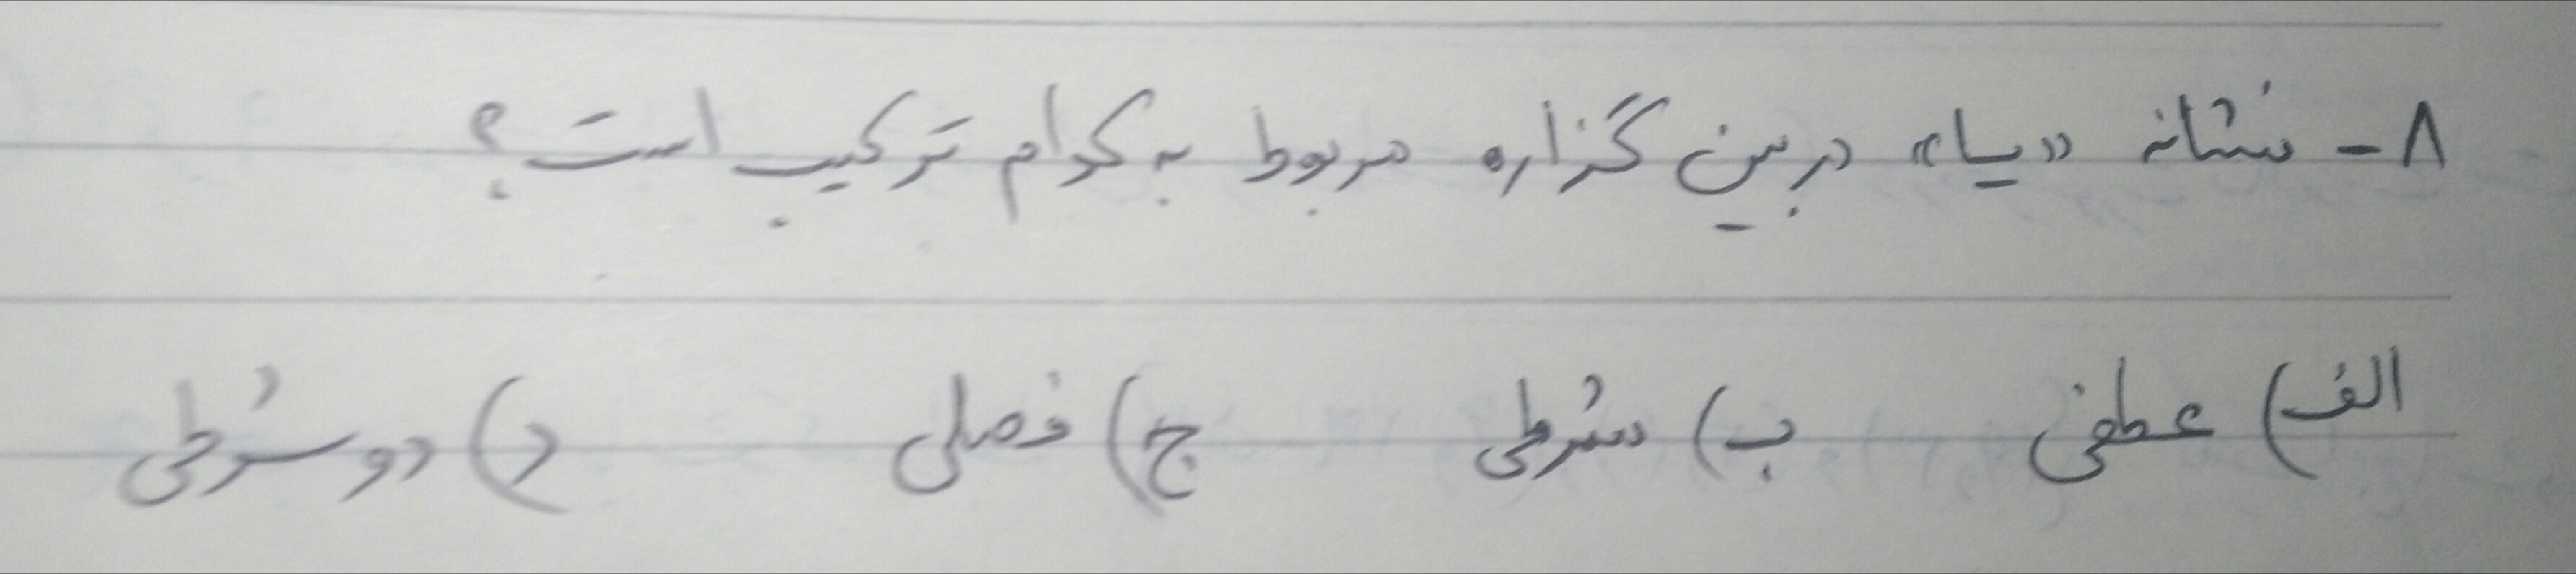 ۸- نشانه «یا» در بین گزاره مربوط به کدام ترکیب است؟
الف) عطفی ب) شرطی ج) فصلی د) دو شرطی